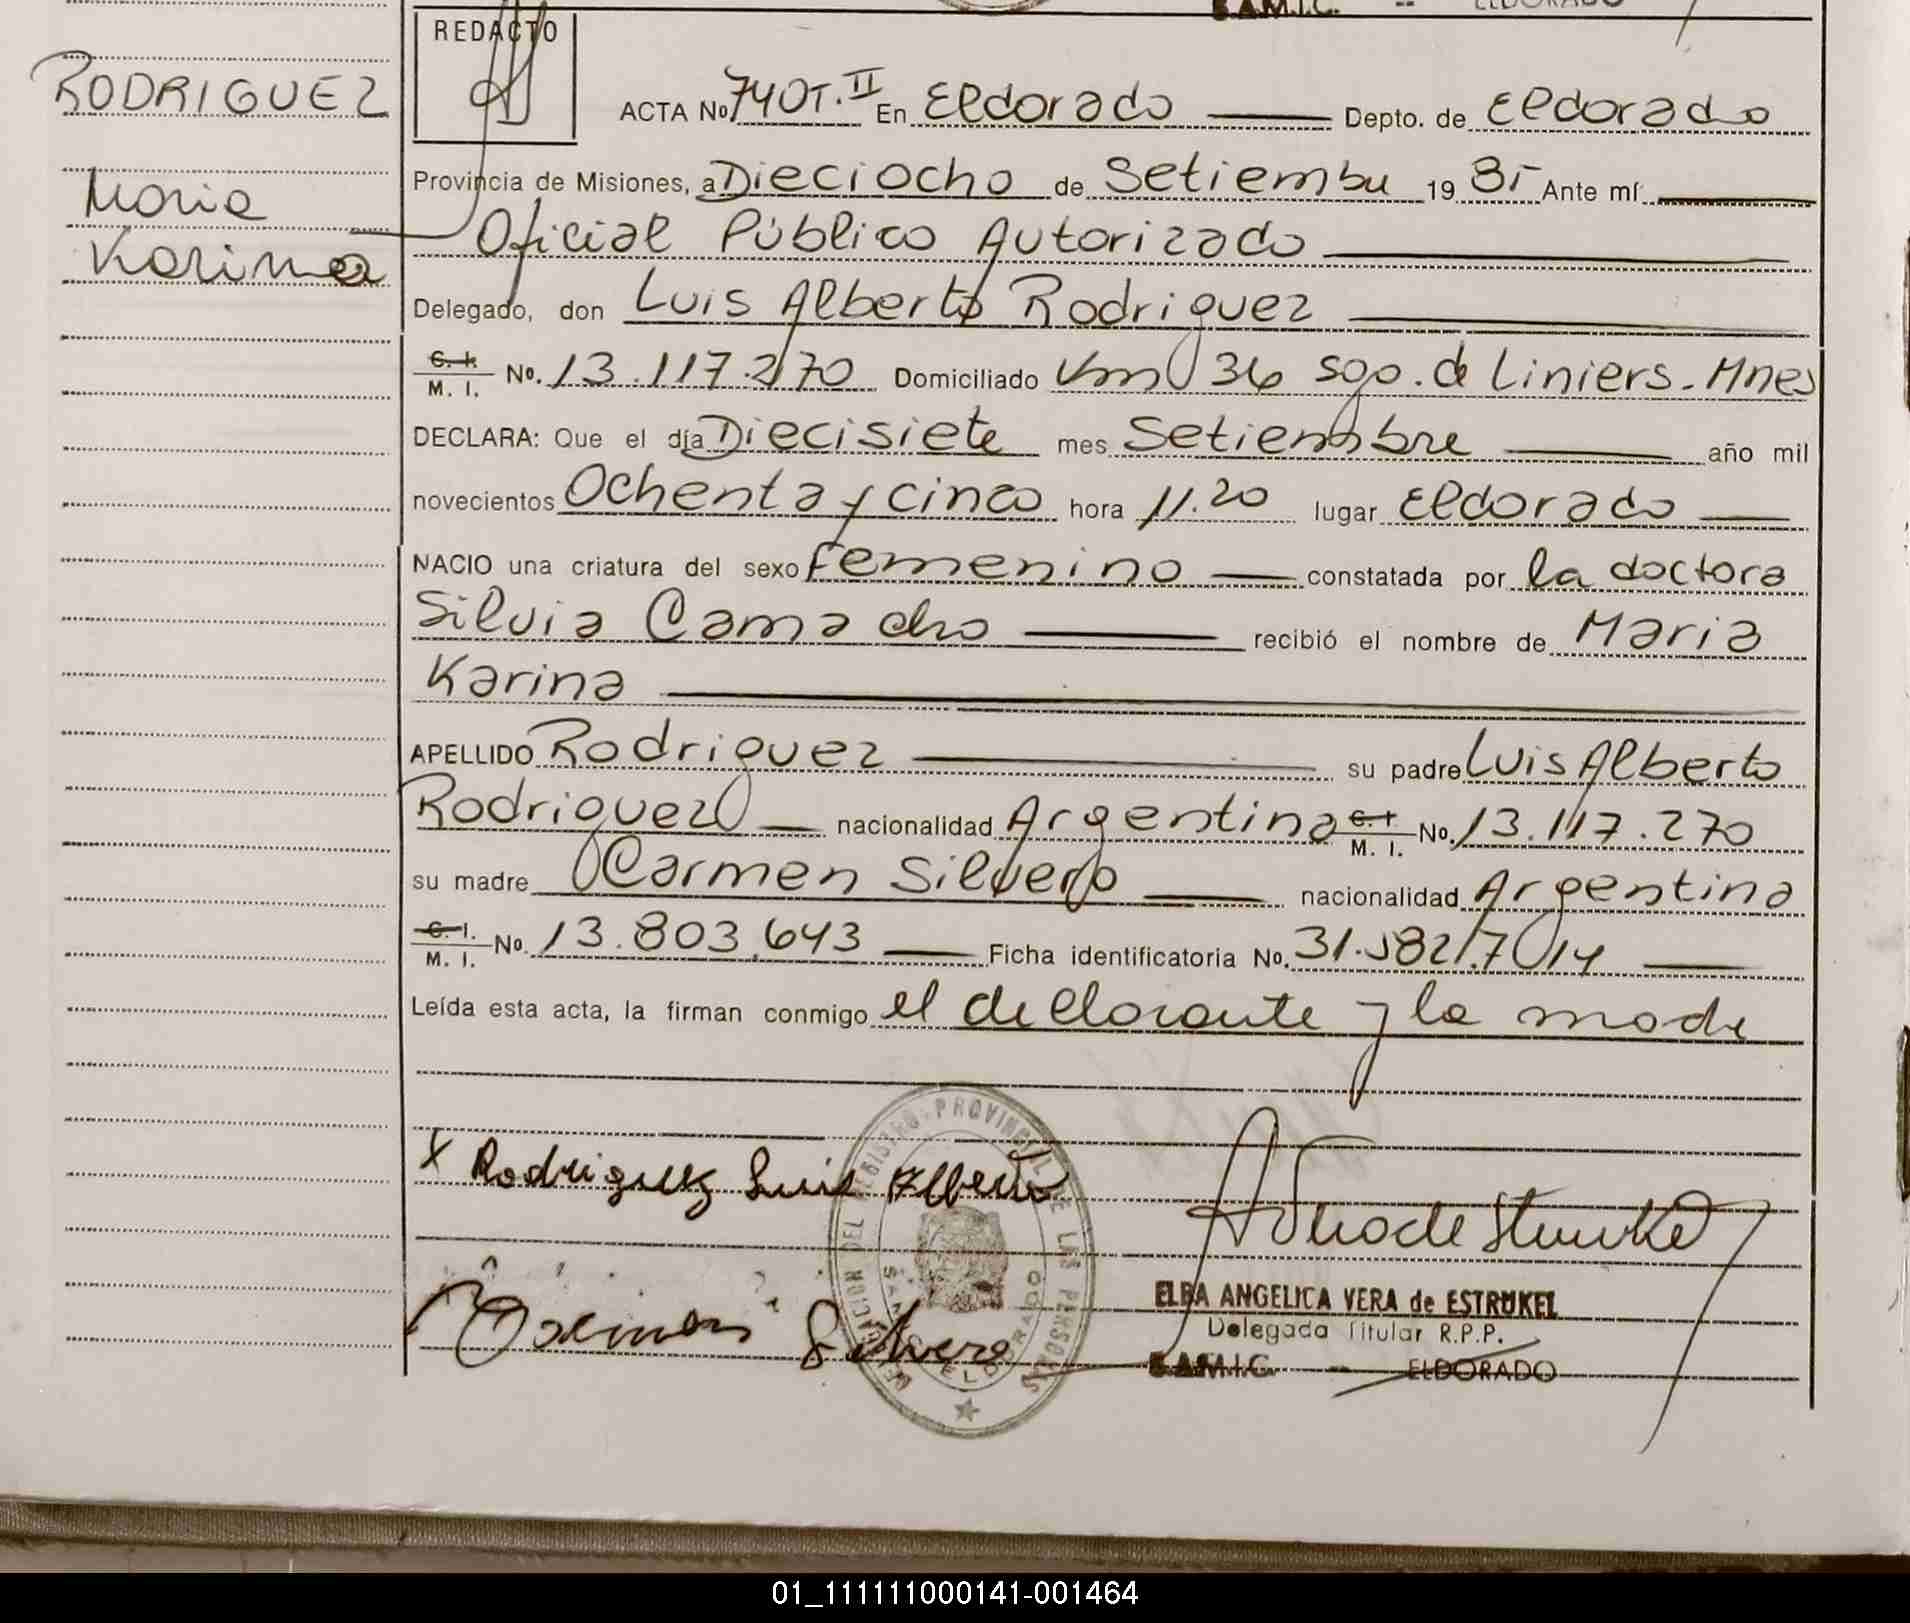 REDACTO
RODRIGUEZ
Maria
Karina
ACTA No 740 T. II En Eldorado Depto. de Eldorado
Provincia de Misiones, a Dieciocho de Setiembre 1985 Ante mí
Oficial Público Autorizado
Delegado, don Luis Alberto Rodriguez
C. I. M. I. No. 13.117.270 Domiciliado Km 36 Sgo. de Liniers - Mnes
DECLARA: Que el día Diecisiete mes Setiembre año mil
novecientos Ochenta y cinco hora 11.20 lugar Eldorado
NACIO una criatura del sexo femenino constatada por la doctora
Silvia Camacho recibió el nombre de Maria
Karina
APELLIDO Rodriguez su padre Luis Alberto
Rodriguez nacionalidad Argentina C. I. M. I. No. 13.117.270
su madre Carmen Silvero nacionalidad Argentina
C. I. M. I. No. 13.803.643 Ficha identificatoria No. 31.582.714
Leída esta acta, la firman conmigo el declarante y la madre
X Rodriguez Luis Alberto
Silvero
DELEGACION DEL REGISTRO PROVINCIAL DE LAS PERSONAS
ELDORADO
ELBA ANGELICA VERA de ESTRUKEL
Delegada Titular R.P.P.
S.A.M.I.C. -- ELDORADO
01_111111000141-001464